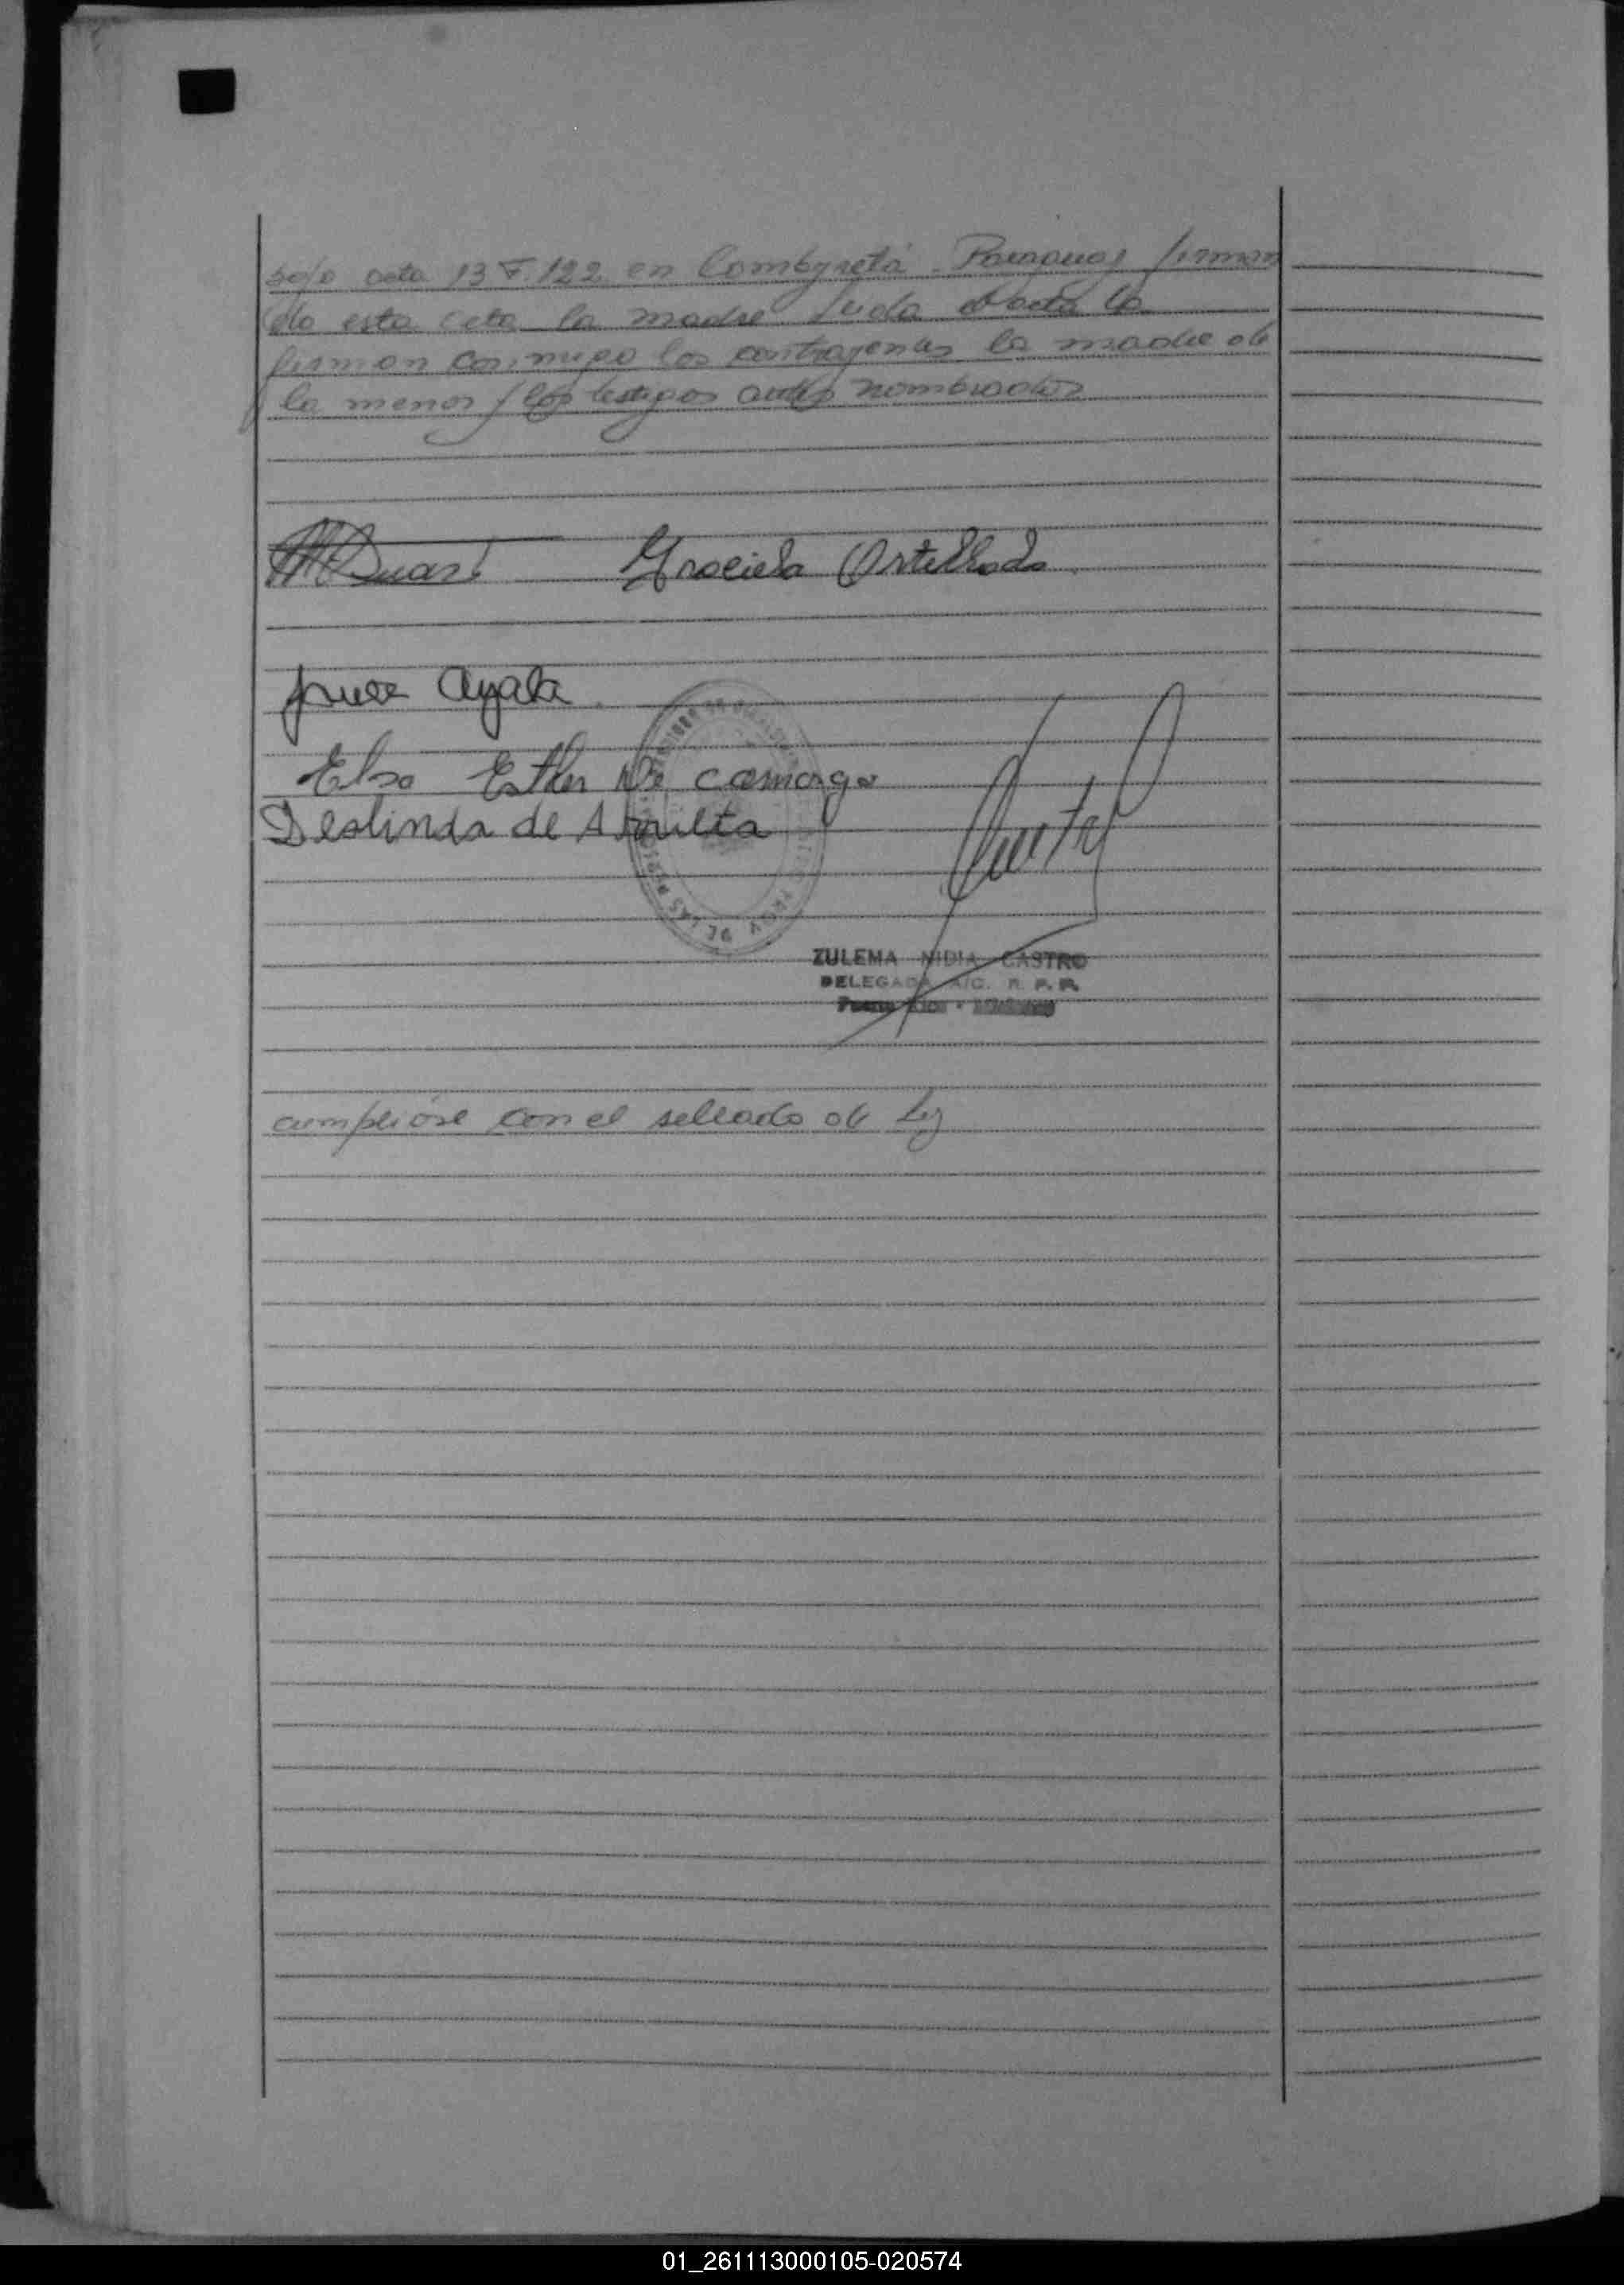 bajo acta 13 F. 122 en Cambyretá - Paraguay firman
do esta acta la madre Leida el acta la
firman conmigo los contrayentes la madre de
la menor y los testigos antes nombrados
Graciela Ortellado
Ayala
Elsa Esther de Camargo
Deolinda de
DE LAS
ZULEMA NIDIA CASTRO
DELEGADA A/C. R. P. P.
Puerto Rico -
cumplióse con el sellado de Ley
01_261113000105-020574